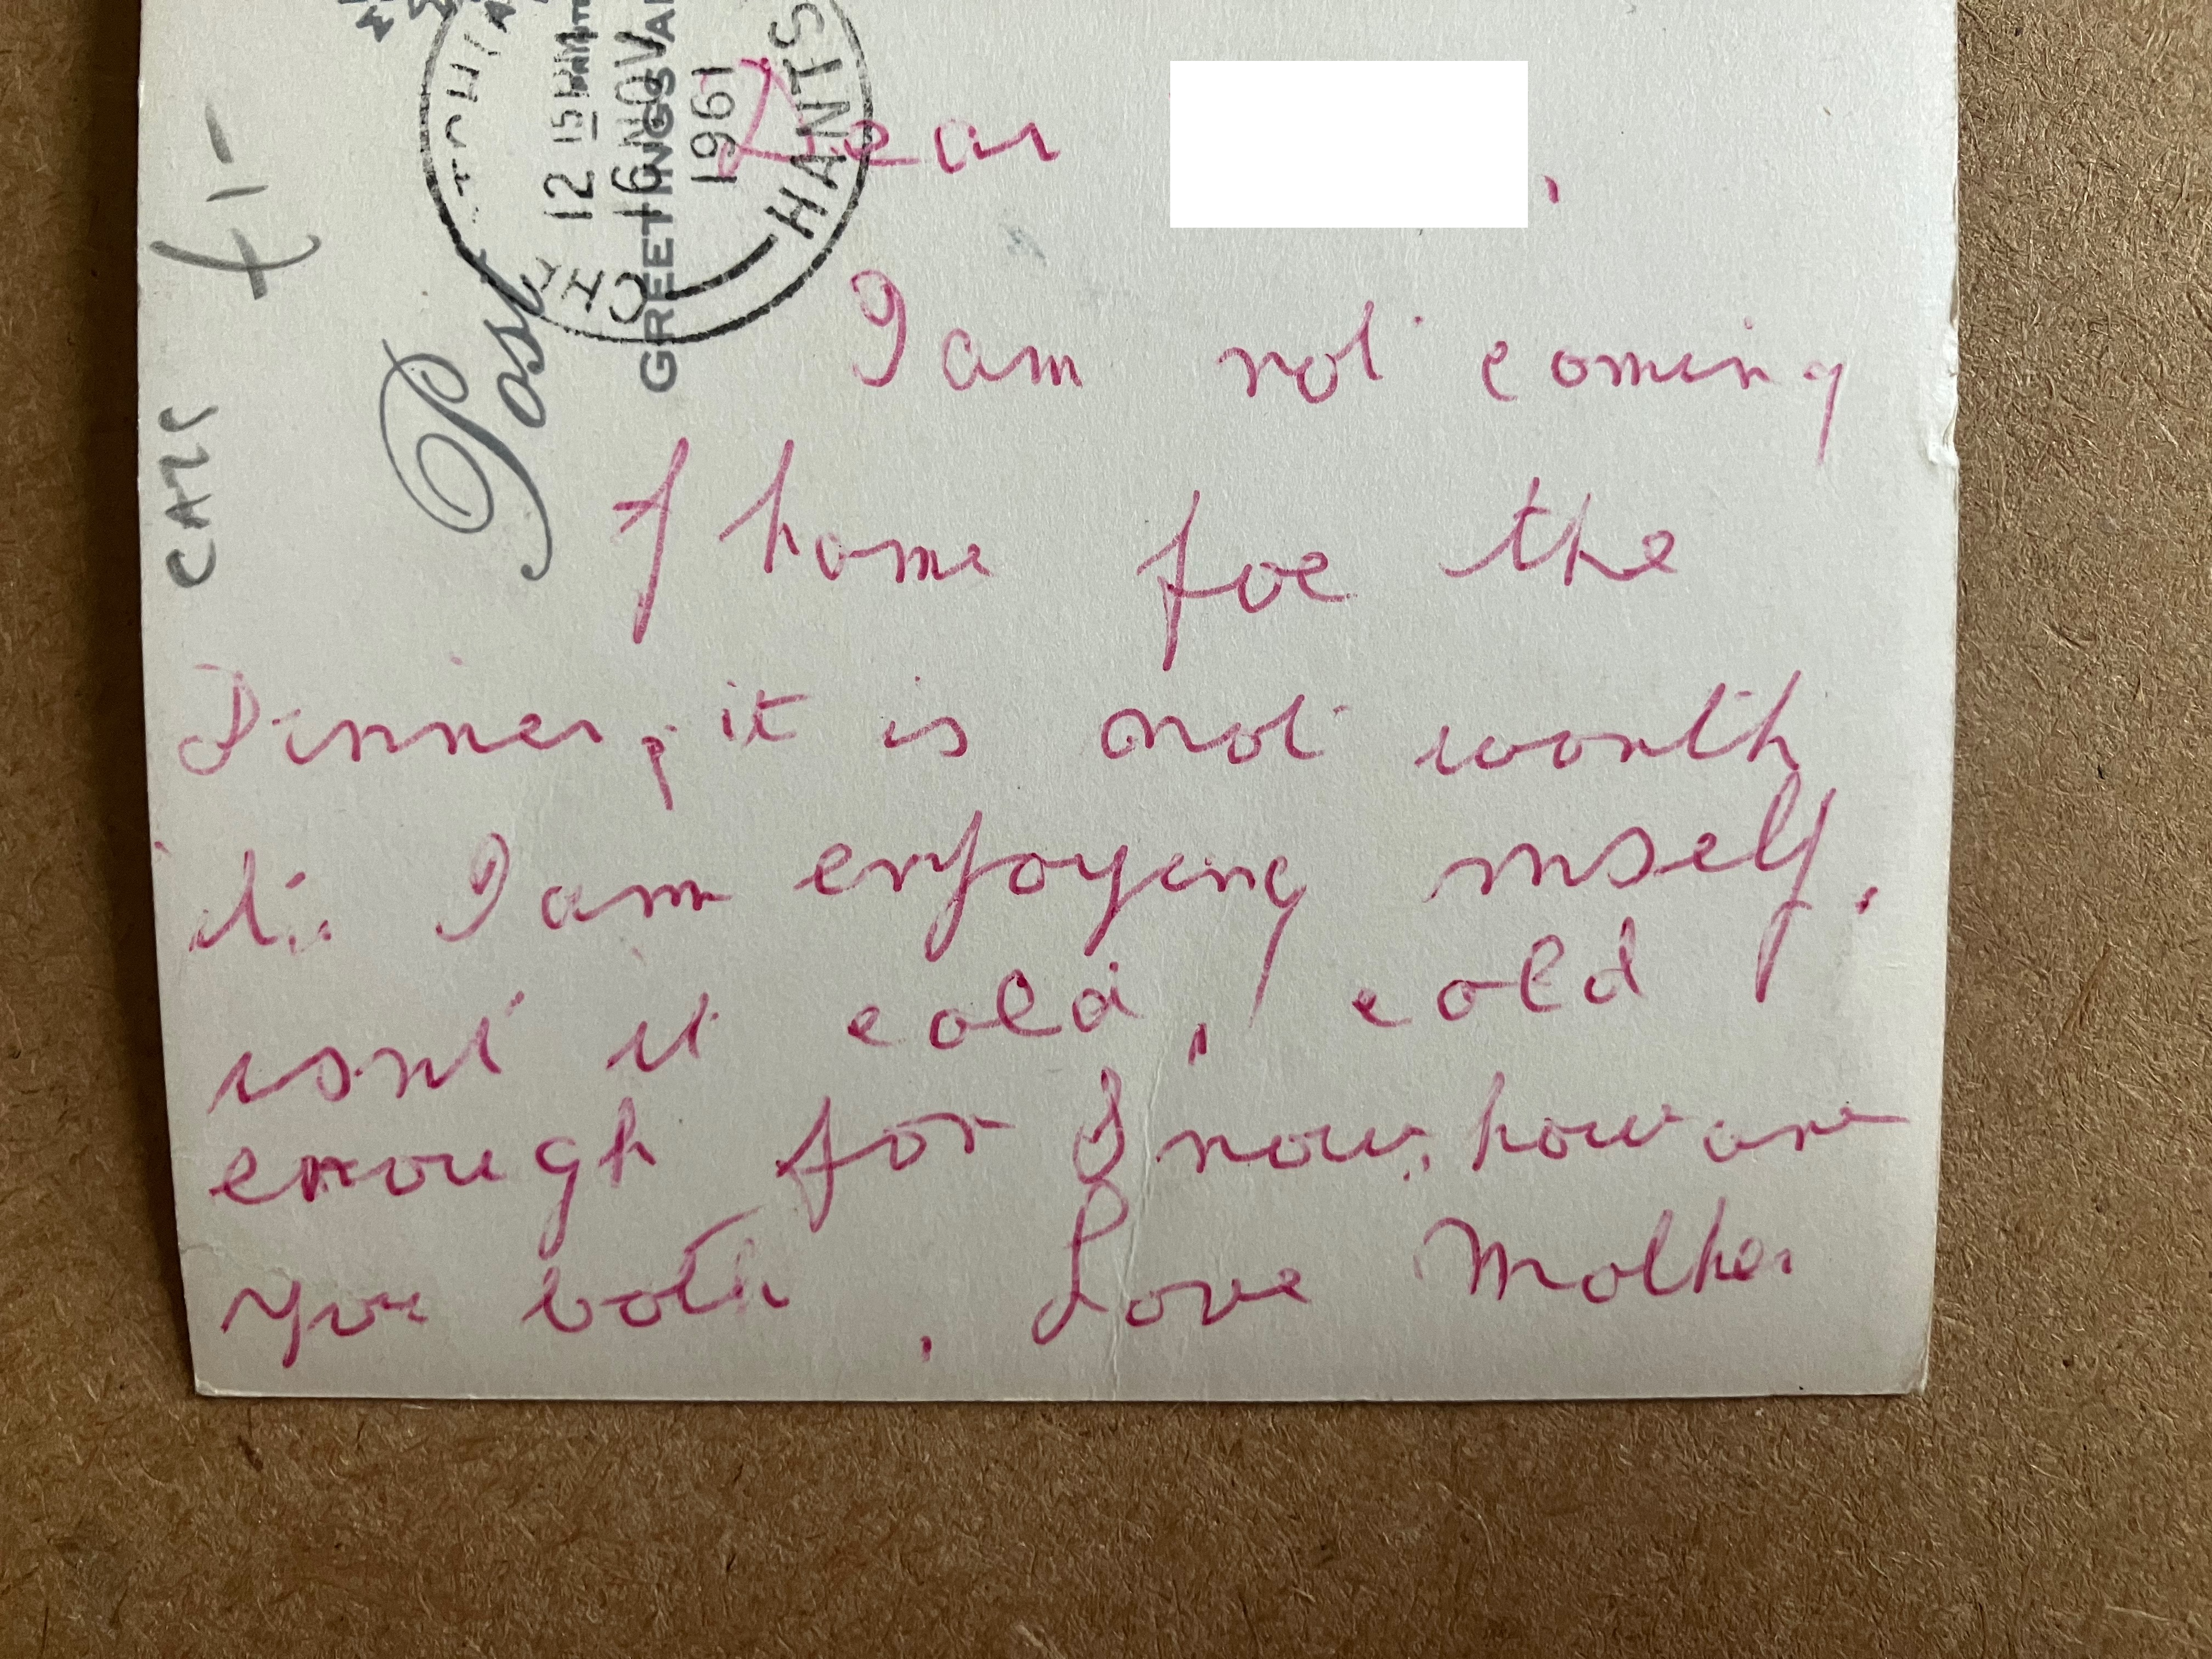 Dear ,
I am not coming
home foe the
Dinner, it is not worth
it. I am enjoying mself.
isnt it cold, cold
enough for Snow, how are
you both, Love Mother
Post
GREETINGS
12 15 PM
16 NOV
1961
HANTS
£1-